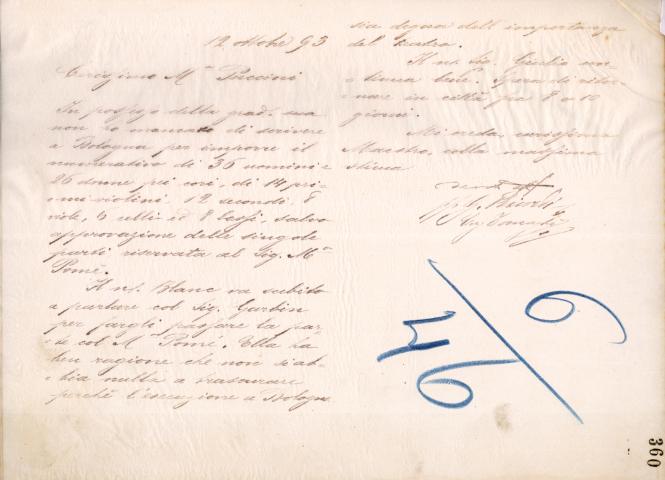 12 ottobre 93
Carissimo M° Puccini
In possesso della grad. sua
non ho mancato di scrivere
a Bologna per imporre il
numerativo di 36 uomini e
26 donne pei cori, di 14 pri-
mi violini 12 secondi 8
viole, celli ed 8 bassi, salvo
approvazione delle singole
parti riservata al Sig. M°
Pomè.
Il ns. Blanc va subito
a parlare col Sig. Garbin
per fargli passare la par-
te col M° Pomè. Ella ha
ben ragione che non si ab-
bia nulla a trascurare
perchè l'esecuzione a Bologna
sia degna dell'importanza
del teatro.
Il ns. Sig. Giulio con-
tinua bene. Spera di ritor-
nare in città fra 8 o 10
giorni.
Mi creda, carissimo
Maestro, colla massima
stima
p. G. Ricordi
360